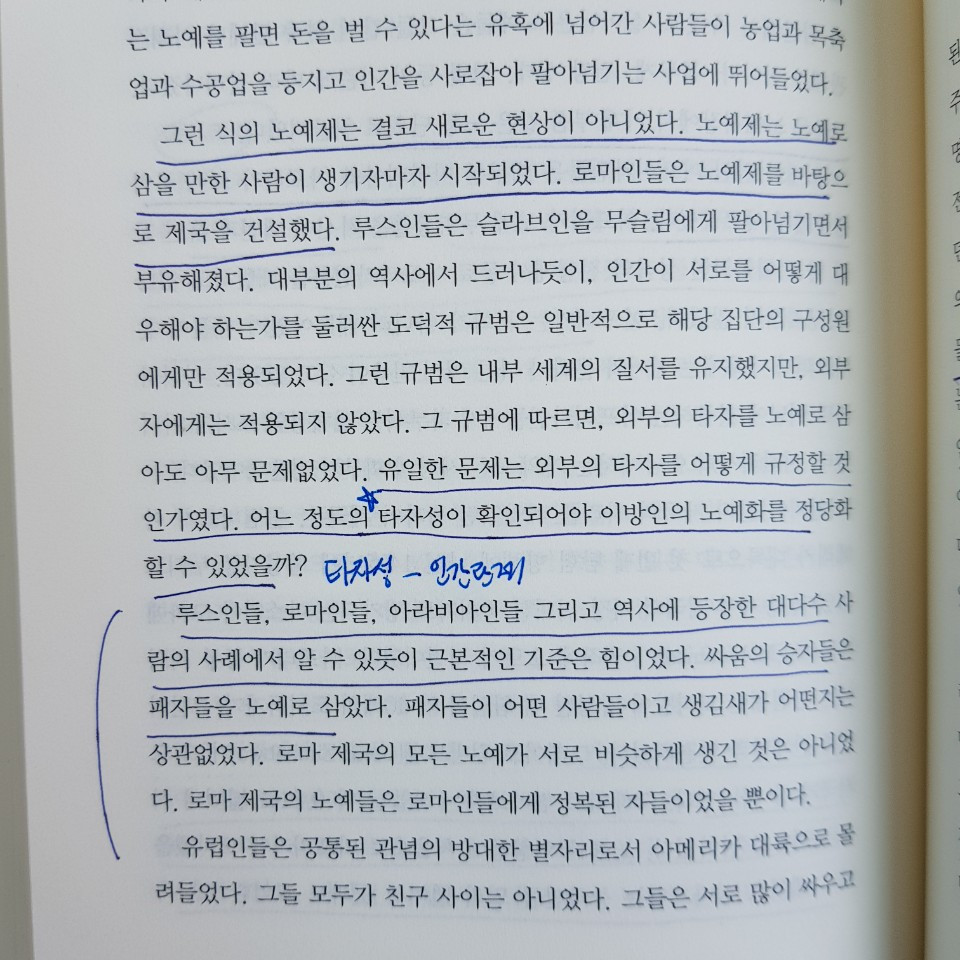 는 노예를 팔면 돈을 벌 수 있다는 유혹에 넘어간 사람들이 농업과 목축
업과 수공업을 등지고 인간을 사로잡아 팔아넘기는 사업에 뛰어들었다.
그런 식의 노예제는 결코 새로운 현상이 아니었다. 노예제는 노예로
삼을 만한 사람이 생기자마자 시작되었다. 로마인들은 노예제를 바탕으
로 제국을 건설했다. 루스인들은 슬라브인을 무슬림에게 팔아넘기면서
부유해졌다. 대부분의 역사에서 드러나듯이, 인간이 서로를 어떻게 대
우해야 하는가를 둘러싼 도덕적 규범은 일반적으로 해당 집단의 구성원
에게만 적용되었다. 그런 규범은 내부 세계의 질서를 유지했지만, 외부
자에게는 적용되지 않았다. 그 규범에 따르면, 외부의 타자를 노예로 삼
아도 아무 문제없었다. 유일한 문제는 외부의 타자를 어떻게 규정할 것
인가였다. 어느 정도의 타자성이 확인되어야 이방인의 노예화를 정당화
할 수 있었을까? 타자성 –
루스인들, 로마인들, 아라비아인들 그리고 역사에 등장한 대다수 사
람의 사례에서 알 수 있듯이 근본적인 기준은 힘이었다. 싸움의 승자들은
패자들을 노예로 삼았다. 패자들이 어떤 사람들이고 생김새가 어떤지는
상관없었다. 로마 제국의 모든 노예가 서로 비슷하게 생긴 것은 아니었
다. 로마 제국의 노예들은 로마인들에게 정복된 자들이었을 뿐이다.
유럽인들은 공통된 관념의 방대한 별자리로서 아메리카 대륙으로 몰
려들었다. 그들 모두가 친구 사이는 아니었다. 그들은 서로 많이 싸우고